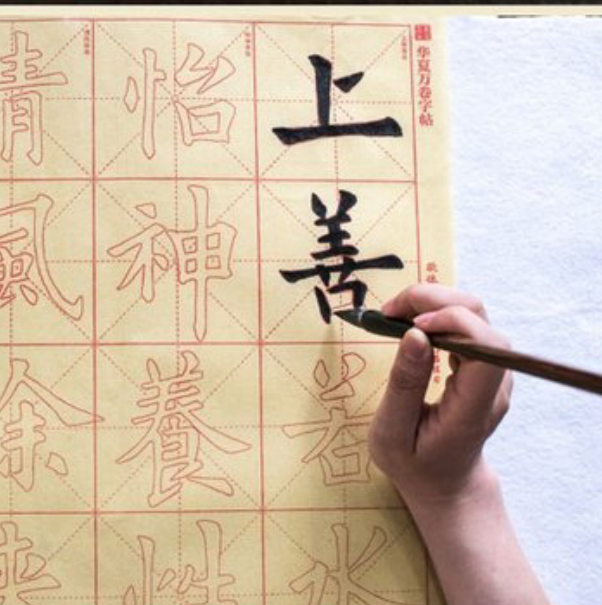 华夏万卷字帖
上善若水
怡神養性
風